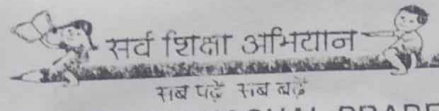 सर्व शिक्षा अभियान
सब पढ़ें सब बढ़ें